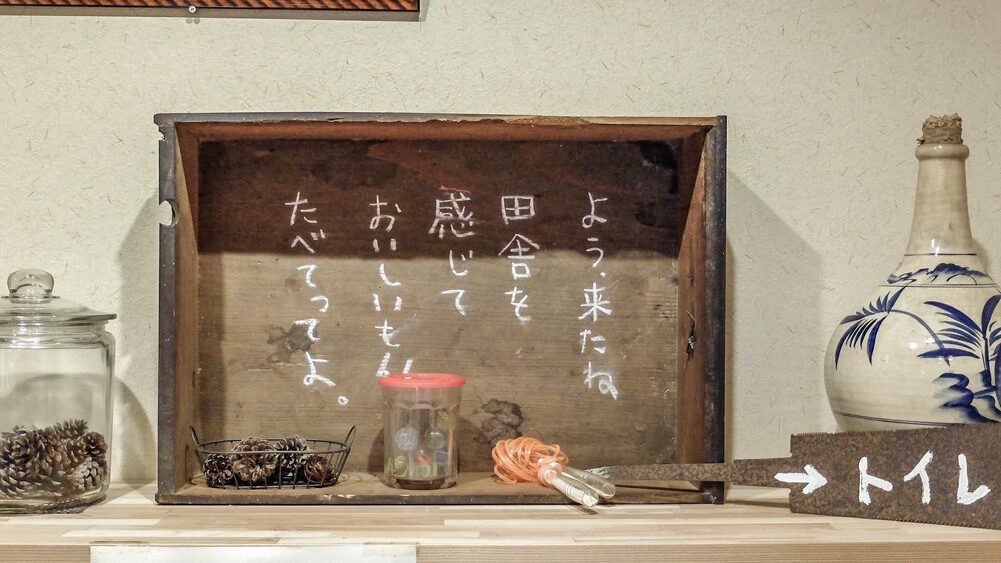 よう来たね
田舎を
感じて
おいしいもん
たべてってよ。
→トイレ